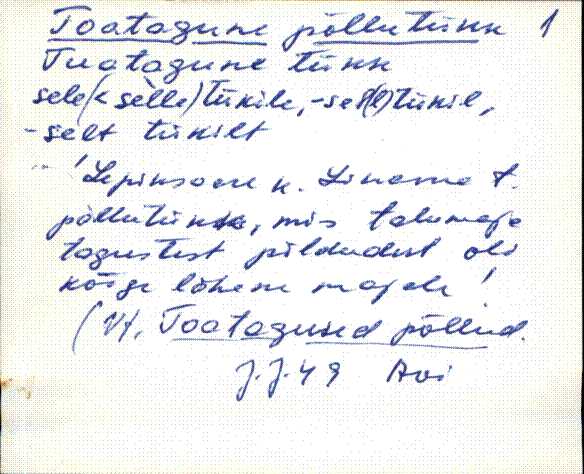 Toatagune põllutükk 1
Tuatagune tükk
sele(< sèlle) tükile, -sel(l) tükil,
-selt tükilt
'Lepiksaare k. Linama t.
põllutükk, mis talumaja
tagustest põldudest oli
kõige lähem majale'
(Vt. Toatagused põllud.
J.J. 49 Avi